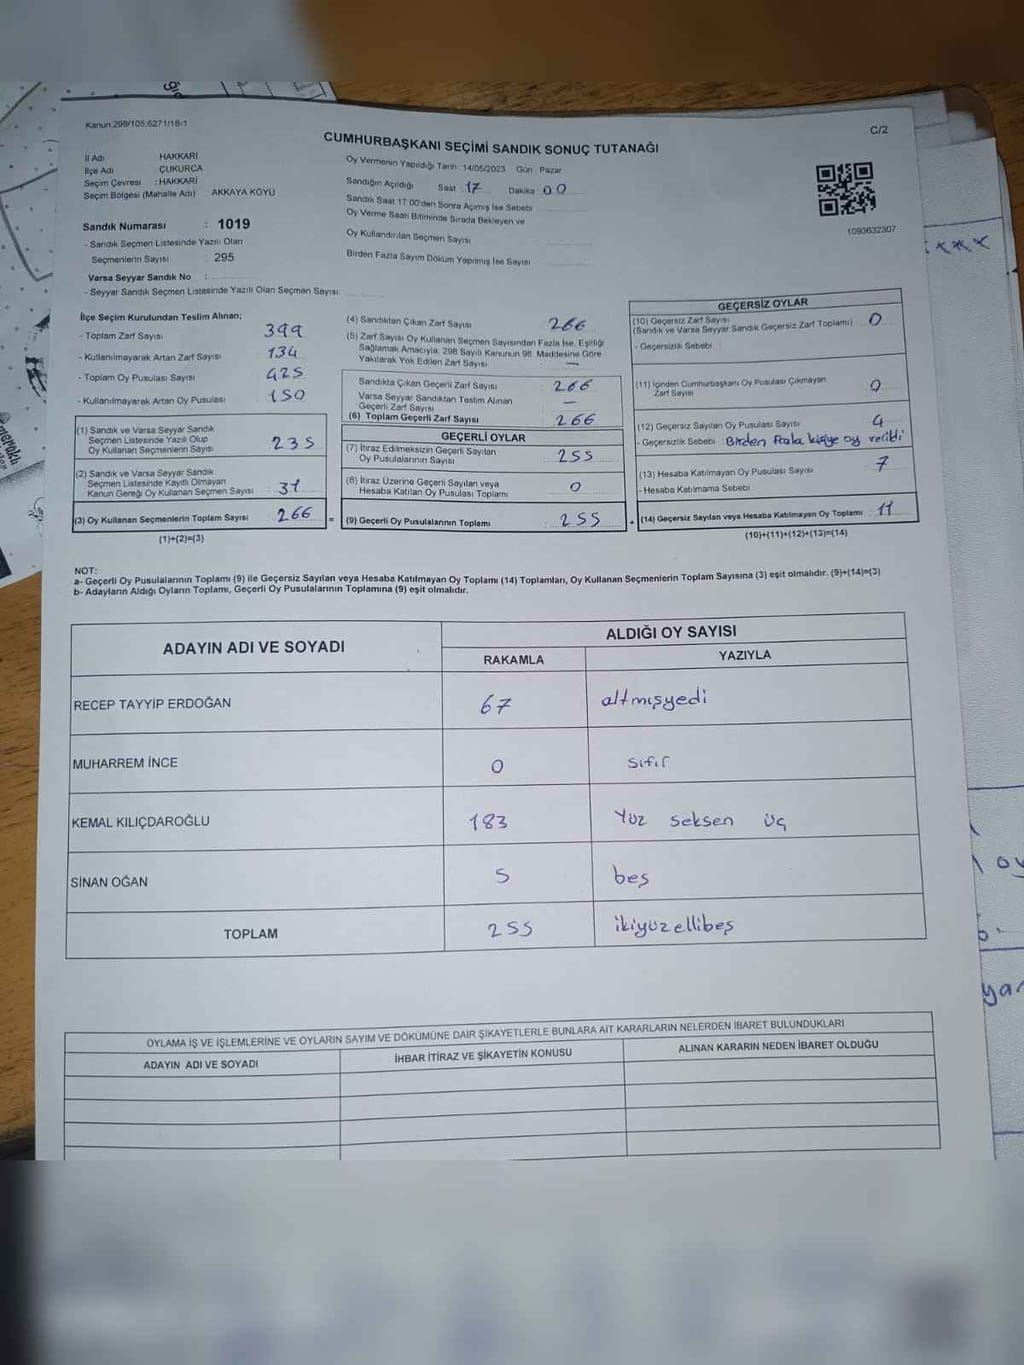 Kanun:298/105,6271/18-1
C/2
CUMHURBAŞKANI SEÇİMİ SANDIK SONUÇ TUTANAĞI
İl Adı HAKKARİ
İlçe Adı ÇUKURCA
Seçim Çevresi : HAKKARİ
Seçim Bölgesi (Mahalle Adı) AKKAYA KÖYÜ
Sandık Numarası : 1019
- Sandık Seçmen Listesinde Yazılı Olan
Seçmenlerin Sayısı 295
Varsa Seyyar Sandık No :
- Seyyar Sandık Seçmen Listesinde Yazılı Olan Seçmen Sayısı
Oy Vermenin Yapıldığı Tarih : 14/05/2023 Gün Pazar
Sandığın Açıldığı Saat 17 Dakika 00
Sandık Saat 17:00'den Sonra Açılmış İse Sebebi
Oy Verme Saati Bitiminde Sırada Bekleyen ve
Oy Kullandırılan Seçmen Sayısı
Birden Fazla Sayım Döküm Yapılmış İse Sayısı
1093632307
İlçe Seçim Kurulundan Teslim Alınan;
- Toplam Zarf Sayısı 399
- Kullanılmayarak Artan Zarf Sayısı 134
- Toplam Oy Pusulası Sayısı 425
- Kullanılmayarak Artan Oy Pusulası 150
(1) Sandık ve Varsa Seyyar Sandık
Seçmen Listesinde Yazılı Olup
Oy Kullanan Seçmenlerin Sayısı 235
(2) Sandık ve Varsa Seyyar Sandık
Seçmen Listesinde Kayıtlı Olmayan
Kanun Gereği Oy Kullanan Seçmen Sayısı 31
(3) Oy Kullanan Seçmenlerin Toplam Sayısı 266 =
(1)+(2)=(3)
(4) Sandıktan Çıkan Zarf Sayısı 266
(5) Zarf Sayısı Oy Kullanan Seçmen Sayısından Fazla İse, Eşitliği
Sağlamak Amacıyla, 298 Sayılı Kanunun 98. Maddesine Göre
Yakılarak Yok Edilen Zarf Sayısı —
Sandıkta Çıkan Geçerli Zarf Sayısı 266
Varsa Seyyar Sandıktan Teslim Alınan
Geçerli Zarf Sayısı —
(6) Toplam Geçerli Zarf Sayısı 266
GEÇERLİ OYLAR
(7) İtiraz Edilmeksizin Geçerli Sayılan
Oy Pusulalarının Sayısı 255
(8) İtiraz Üzerine Geçerli Sayılan veya
Hesaba Katılan Oy Pusulası Toplamı 0
(9) Geçerli Oy Pusulalarının Toplamı : 255 +
GEÇERSİZ OYLAR
(10) Geçersiz Zarf Sayısı
(Sandık ve Varsa Seyyar Sandık Geçersiz Zarf Toplamı) 0
- Geçersizlik Sebebi
(11) İçinden Cumhurbaşkanı Oy Pusulası Çıkmayan
Zarf Sayısı 0
(12) Geçersiz Sayılan Oy Pusulası Sayısı 4
- Geçersizlik Sebebi Birden fazla kişiye oy verildi
(13) Hesaba Katılmayan Oy Pusulası Sayısı 7
- Hesaba Katılmama Sebebi
(14) Geçersiz Sayılan veya Hesaba Katılmayan Oy Toplamı : 11
(10)+(11)+(12)+(13)=(14)
NOT:
a- Geçerli Oy Pusulalarının Toplamı (9) ile Geçersiz Sayılan veya Hesaba Katılmayan Oy Toplamı (14) Toplamları, Oy Kullanan Seçmenlerin Toplam Sayısına (3) eşit olmalıdır. (9)+(14)=(3)
b- Adayların Aldığı Oyların Toplamı, Geçerli Oy Pusulalarının Toplamına (9) eşit olmalıdır.
ADAYIN ADI VE SOYADI
ALDIĞI OY SAYISI
RAKAMLA YAZIYLA
RECEP TAYYİP ERDOĞAN 67 altmışyedi
MUHARREM İNCE 0 sıfır
KEMAL KILIÇDAROĞLU 183 Yüz seksen üç
SİNAN OĞAN 5 beş
TOPLAM 255 ikiyüzellibeş
OYLAMA İŞ VE İŞLEMLERİNE VE OYLARIN SAYIM VE DÖKÜMÜNE DAİR ŞİKAYETLERLE BUNLARA AİT KARARLARIN NELERDEN İBARET BULUNDUKLARI
ADAYIN ADI VE SOYADI İHBAR İTİRAZ VE ŞİKAYETİN KONUSU ALINAN KARARIN NEDEN İBARET OLDUĞU